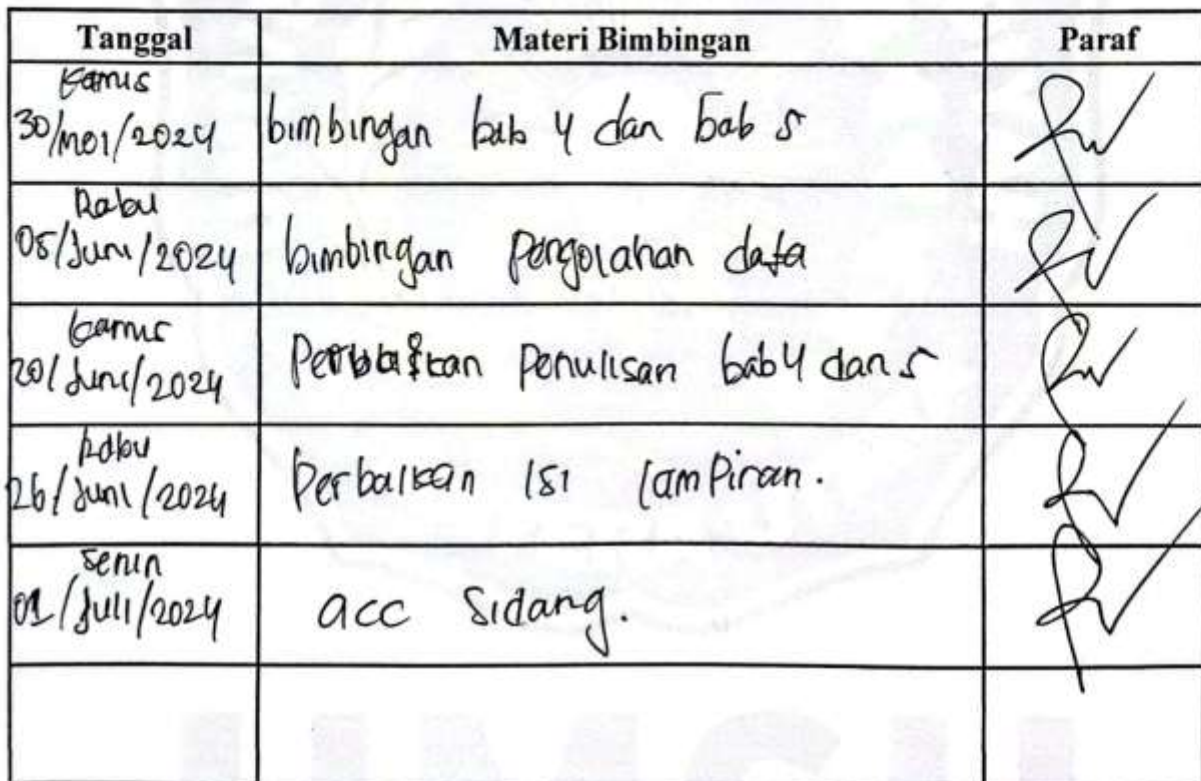 Tanggal Materi Bimbingan Paraf
Kamis
30/Mei/2024 bimbingan bab 4 dan bab 5
Rabu
05/Juni/2024 bimbingan Pengolahan data
Kamis
20/Juni/2024 Perbaikan Penulisan bab 4 dan 5
Rabu
26/Juni/2024 Perbaikan Isi lampiran.
Senin
01/Juli/2024 acc Sidang.